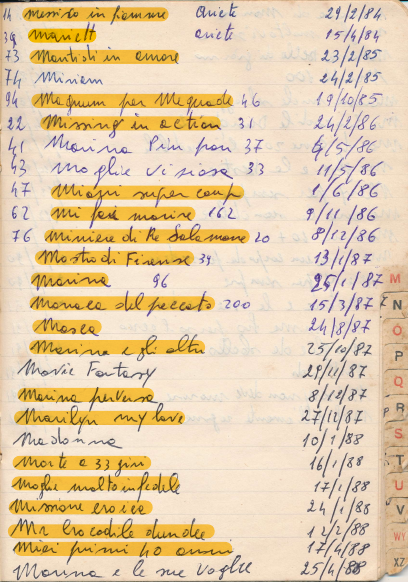 14 Messico in fiamme Ariete 29/2/84
39 Mariett ariete 15/4/84
73 Mantidi in amore 23/2/85
74 Miriam 24/2/85
94 Magnum per Mequade 46 19/10/85
22 Missing in action 31 24/2/86
41 Marina Pim pon 37 4/5/86
43 moglie viziosa 33 11/5/86
47 Miami super coup 1/6/86
62 Mi fai morire 162 9/11/86
76 Miniere di Re Salomone 20 8/12/86
Mostro di Firenze 34 13/1/87
Marina 96 25/1/87
Monaca del peccato 200 15/3/87
Mosca 24/8/87
Marina e gli altri 25/10/87
Movie Fantasy 29/11/87
Marina perversa 8/12/87
Marilyn my love 27/12/87
Madonna 10/1/88
Morte a 33 giri 16/1/88
Moglie molto infedele 17/1/88
Missione eroica 24/1/88
Mr Crocodile dundee 12/2/88
Miei primi 40 anni 17/4/88
Marina e le sue voglie 25/4/88
M
N
O
P
Q
R
S
T
U
V
WY
XZ